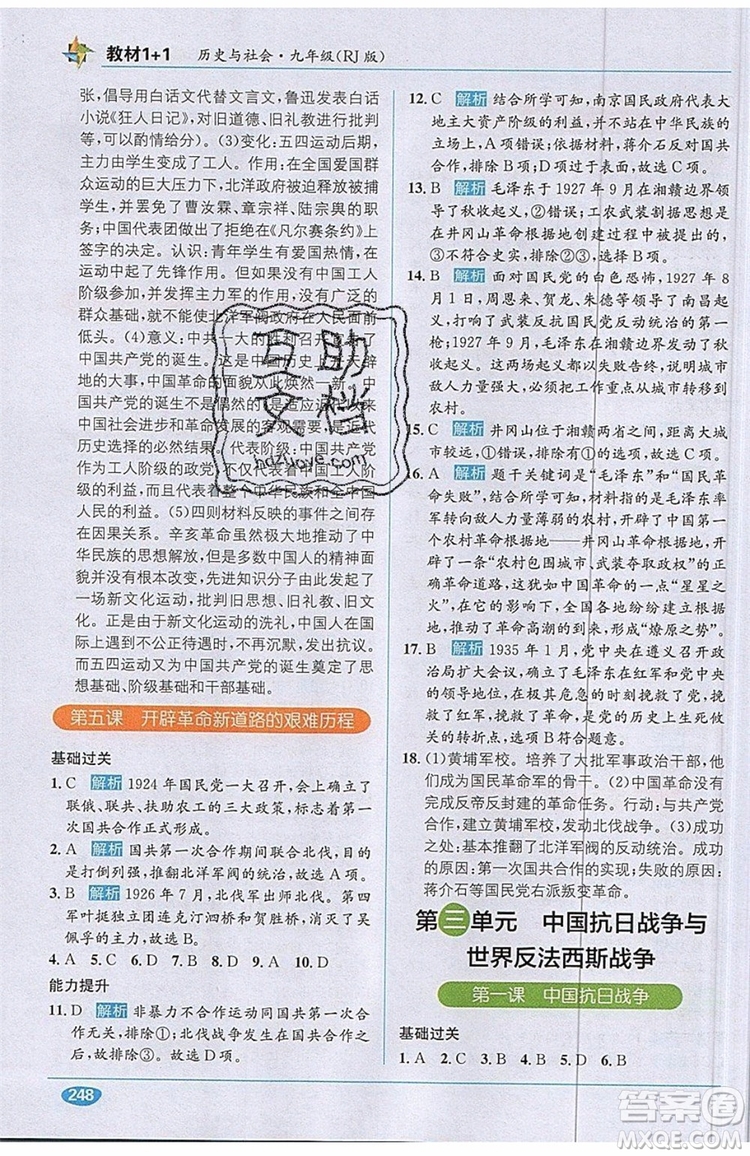 教材1+1 历史与社会·九年级(RJ版)
张，倡导用白话文代替文言文，鲁迅发表白话
小说《狂人日记》，对旧道德、旧礼教进行批判
等。(可以酌情给分)。(3)变化：五四运动后期，
主力由学生变成了工人。作用：在全国爱国群
众运动的巨大压力下，北洋政府被迫释放被捕
学生，罢免了曹汝霖、章宗祥、陆宗舆的职
务；中国代表团做出了拒绝在《凡尔赛条约》上
签字的决定。认识：青年学生有爱国热情，在
运动中起了先锋作用。但因为没有中国工人
阶级的参与并发挥主力军的作用，没有广泛的
群众基础，就不能使北洋军阀政府在人民面前
低头。(4)意义：中共一大的胜利召开
中国共产党的诞生。这是中国历史上开天辟
地的大事，中国革命的面貌从此焕然一新。中
国共产党的诞生，不是偶然的
中国社会进步和革命发展的客观
历史的必然结果。代表阶级：中国共产党
是工人阶级的政党，不仅代表着中国工人阶
级的利益，而且代表着整个中华民族和全中国
人民的利益。(5)四则材料反映的事件之间存
在因果关系。辛亥革命虽然极大地推动了中
华民族的思想解放，但多数中国人的精神面
貌并没有根本改变，先进知识分子由此发起了
一场新文化运动，批判旧思想、旧礼教、旧文
化、旧道德。由于新文化运动，中国人在国
际上遇到不公正待遇时，不再沉默，发出抗议。
而五四运动又为中国共产党的诞生奠定了思
想基础、阶级基础和干部基础。
第五课 开辟革命新道路的艰难历程
基础过关
1. C 解析 1924年国民党一大召开，会上确立了
联俄、联共、扶助农工的三大政策，标志着第一
次国共合作正式形成。
2. A 解析 国共第一次合作期间联合北伐，目的
是打倒列强，推翻北洋军阀统治。故选A项。
3. B 解析 1926年7月，北伐军出师北伐。第四
军叶挺独立团连克汀泗桥和贺胜桥，消灭了吴
佩孚的主力。故选B项。
4. A 5. D 6. A 7. B 8. C 9. D 10. A
能力提升
11. D 解析 非暴力不合作运动同国共第一次合
作无关，排除①；北伐战争发生在国共合作期间，
排除③。故选D项。
248
12. C 解析 结合所学可知，南京国民政府代表大
地主大资产阶级的利益，并站在中华民族的立
场上，A项错误；依材料，蒋介石反对不是国共
合作，排除B项；D项过于表面，故选C项。
13. B 解析 毛泽东于1927年9月在湘赣边界领
导秋收起义，②错误；工农武装割据思想是
在井冈山革命根据地创建过程中提出来的，
③不符合史实，排除③，故选B项。
14. B 解析 面对国民党的白色恐怖，1927年8
月1日，周恩来、贺龙、朱德等领导了南昌起
义，打响了武装反抗国民党反动统治的第一
枪；公开这些起义都以失败告终，说明城市
敌人力量强大，革命的重点应从城市转移到
农村。
15. C 解析 井冈山位于湘赣两省之间，距离大城
市较远，①错误，排除有①的选项，故选C项。
16. A 解析 题干关键词是“毛泽东”和“国民革
命失败”，结合所学可知，材料指的是毛泽东率
军转入敌人力量薄弱的农村，开辟了中国第一
个农村革命根据地——井冈山革命根据地，找
到了“农村包围城市、武装夺取政权”的正
确革命道路，这点中国革命的一支“星星之
火”，并以此为起点在全国各地创建根据地，
推动了革命高潮的到来，形成“燎原之势”。
故选A项。
17. B 解析 1935年1月，党中央在遵义召开政
治局扩大会议，确立了以毛泽东为核心的党中
央的正确领导。在危急时刻，挽救了党，挽救
了红军，挽救了革命，是党的历史上生死攸关
的转折点。故B符合题意。
18. (1)黄埔军校。培养了大批军事政治干部，他
们成为国民革命军的骨干。(2)与共产党合作
完成反帝反封建的革命任务。行动：与共产党
合作；创建黄埔军校；发动北伐战争。(3)成功
之处：基本推翻了北洋军阀的反动统治。成功
的原因：第一次国共合作的实现；失败的原因：
蒋介石等国民党右派叛变革命。
第三单元 中国抗日战争与
世界反法西斯战争
第一课 中国抗日战争
基础过关
1. A 2. C 3. B 4. D 5. D 6. B
互助
文档
hdzuoye.com
答案圈
MXQE.COM